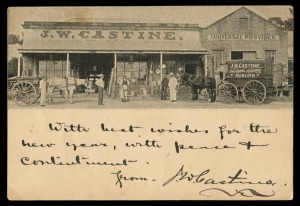 J.W. CASTINE.
UNIVERSAL PROVIDER.
J.W. CASTINE.
With best wishes for the
new year, with peace &
Contentment.
from. JWCastine.